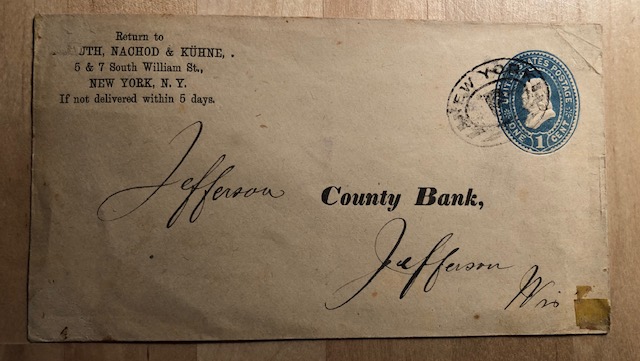 Return to
NACHOD & KÜHNE,
5 & 7 South William St.,
NEW YORK, N. Y.
If not delivered within 5 days.
NEW YORK
UNITED STATES POSTAGE
ONE 1 CENT
Jefferson County Bank,
Jefferson
Wis